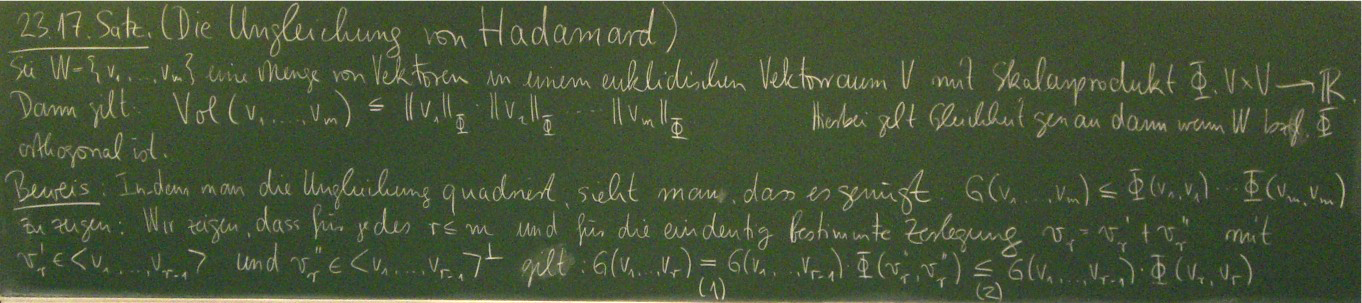 23.17. Satz. (Die Ungleichung von Hadamard)
Sei W = {v₁, ..., vₘ} eine Menge von Vektoren in einem euklidischen Vektorraum V mit Skalarprodukt Φ: V×V → ℝ.
Dann gilt: Vol(v₁, ..., vₘ) ≤ ||v₁||_Φ · ||v₂||_Φ ··· ||vₘ||_Φ Hierbei gilt Gleichheit genau dann wenn W bzgl. Φ
orthogonal ist.
Beweis: Indem man die Ungleichung quadriert, sieht man, dass es genügt G(v₁, ..., vₘ) ≤ Φ(v₁,v₁) ··· Φ(vₘ,vₘ)
zu zeigen: Wir zeigen, dass für jedes r ≤ m und für die eindeutig bestimmte Zerlegung vᵣ = vᵣ' + vᵣ'' mit
vᵣ' ∈ <v₁, ..., vᵣ₋₁> und vᵣ'' ∈ <v₁, ..., vᵣ₋₁>^⊥ gilt: G(v₁, ..., vᵣ) =_(1) G(v₁, ..., vᵣ₋₁) Φ(vᵣ'', vᵣ'') ≤_(2) G(v₁, ..., vᵣ₋₁) · Φ(vᵣ, vᵣ)